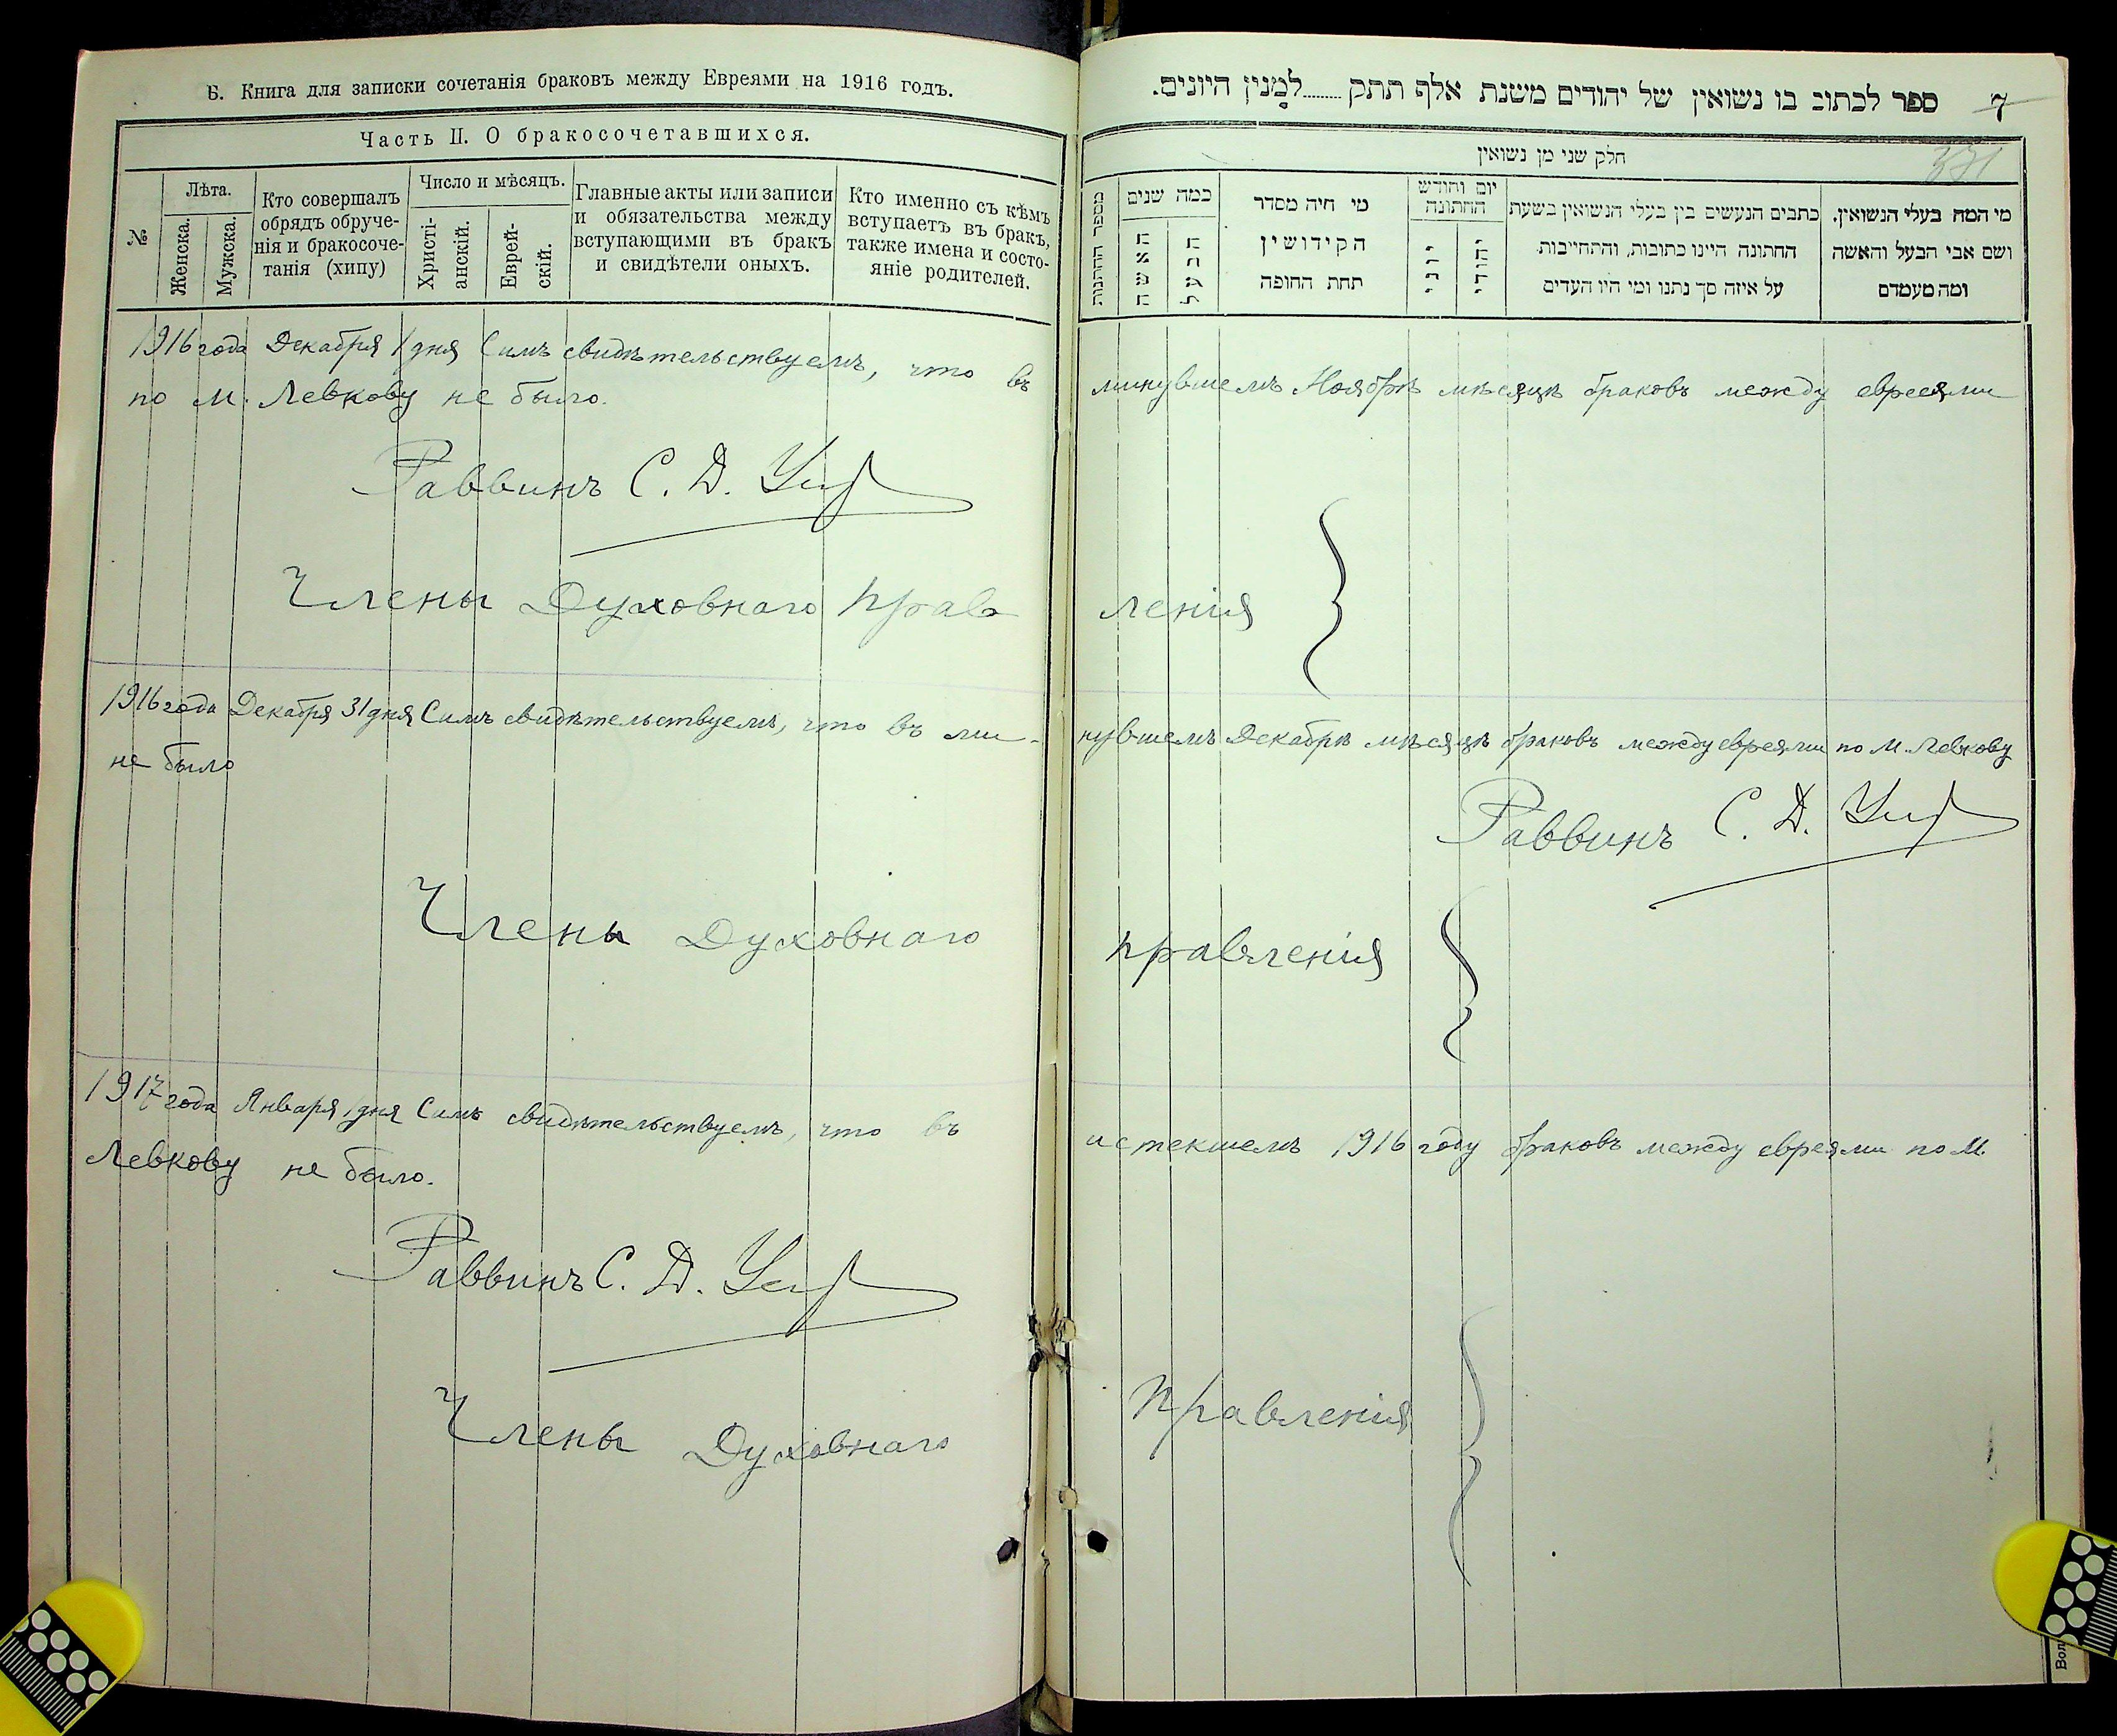 Б. Книга для записки сочетанія браковъ между Евреями на 1916 годъ.
Часть II. О бракосочетавшихся.
№
Лѣта.
Женска.
Мужска.
Кто совершалъ
обрядъ обруче-
нія и бракосоче-
танія (хипу)
Число и мѣсяцъ.
Христі-
анскій.
Еврей-
скій.
Главные акты или записи
и обязательства между
вступающими въ бракъ
и свидѣтели оныхъ.
Кто именно съ кѣмъ
вступаетъ въ бракъ,
также имена и состо-
яніе родителей.
ספר לכתוב בו נשואין של יהודים משנת אלף תתק........למנין היונים.
7
371
חלק שני מן נשואין
מספר החתונות
כמה שנים
האשה
הבעל
מי היה מסדר
הקידושין
תחת החופה
יום וחודש
החתונה
יוני
יהודי
כתבים הנעשים בין בעלי הנשואין בשעת
החתונה היינו כתובות, והתחייבות
על איזה סך נתנו ומי היו העדים
מי המה בעלי הנשואין,
ושם אבי הבעל והאשה
ומה מעמדם
1916 года Декабря 1 дня Симъ свидѣтельствуемъ, что въ минувшемъ Ноябрѣ мѣсяцѣ браковъ между евреями
по М. Левкову не было.
Раввинъ С. Д.
Члены Духовнаго Правленія
1916 года Декабря 31 дня Симъ свидѣтельствуемъ, что въ ми-нувшемъ Декабрѣ мѣсяцѣ браковъ между евреями по М. Левкову
не было
Раввинъ С. Д.
Члены Духовнаго правленія
1917 года Января 1 дня Симъ свидѣтельствуемъ, что въ истекшемъ 1916 году браковъ между евреями по М.
Левкову не было.
Раввинъ С. Д.
Члены Духовнаго Правленія